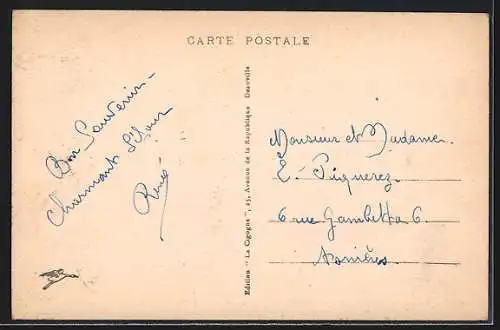 CARTE POSTALE
Bon Souvenir -
Charmant Séjour
René
Edition " La Cigogne ", 25, Avenue de la République Deauville
Monsieur et Madame
E. Piquerez
6 rue Gambetta 6
Asnières